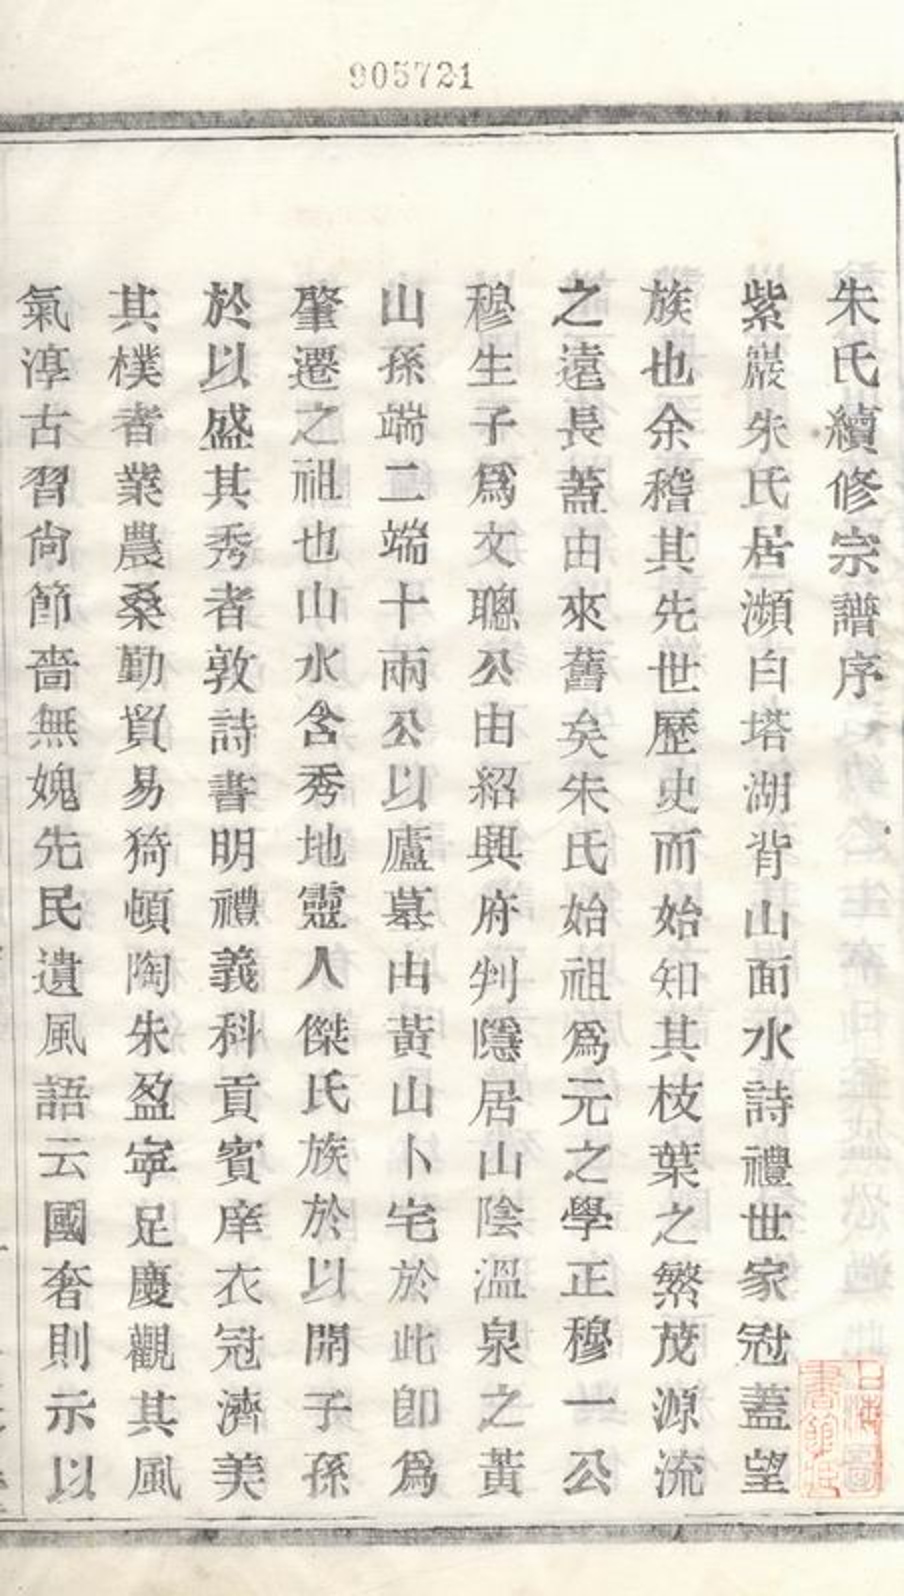 905721
朱氏續修宗譜序
紫巖朱氏居瀕白塔湖背山面水詩禮世家冠蓋望
族也余稽其先世歷史而始知其枝葉之繁茂源流
之遠長蓋由來舊矣朱氏始祖爲元之學正穆一公
穆生子爲文聰公由紹興府判隱居山陰溫泉之黃
山孫端二端十兩公以廬墓由黃山卜宅於此卽爲
肇遷之祖也山水含秀地靈人傑氏族於以開子孫
於以盛其秀者敦詩書明禮義科貢賓庠衣冠濟美
其樸者業農桑勤貿易猗頓陶朱盈寧足慶觀其風
氣淳古習尙節嗇無媿先民遺風語云國奢則示以